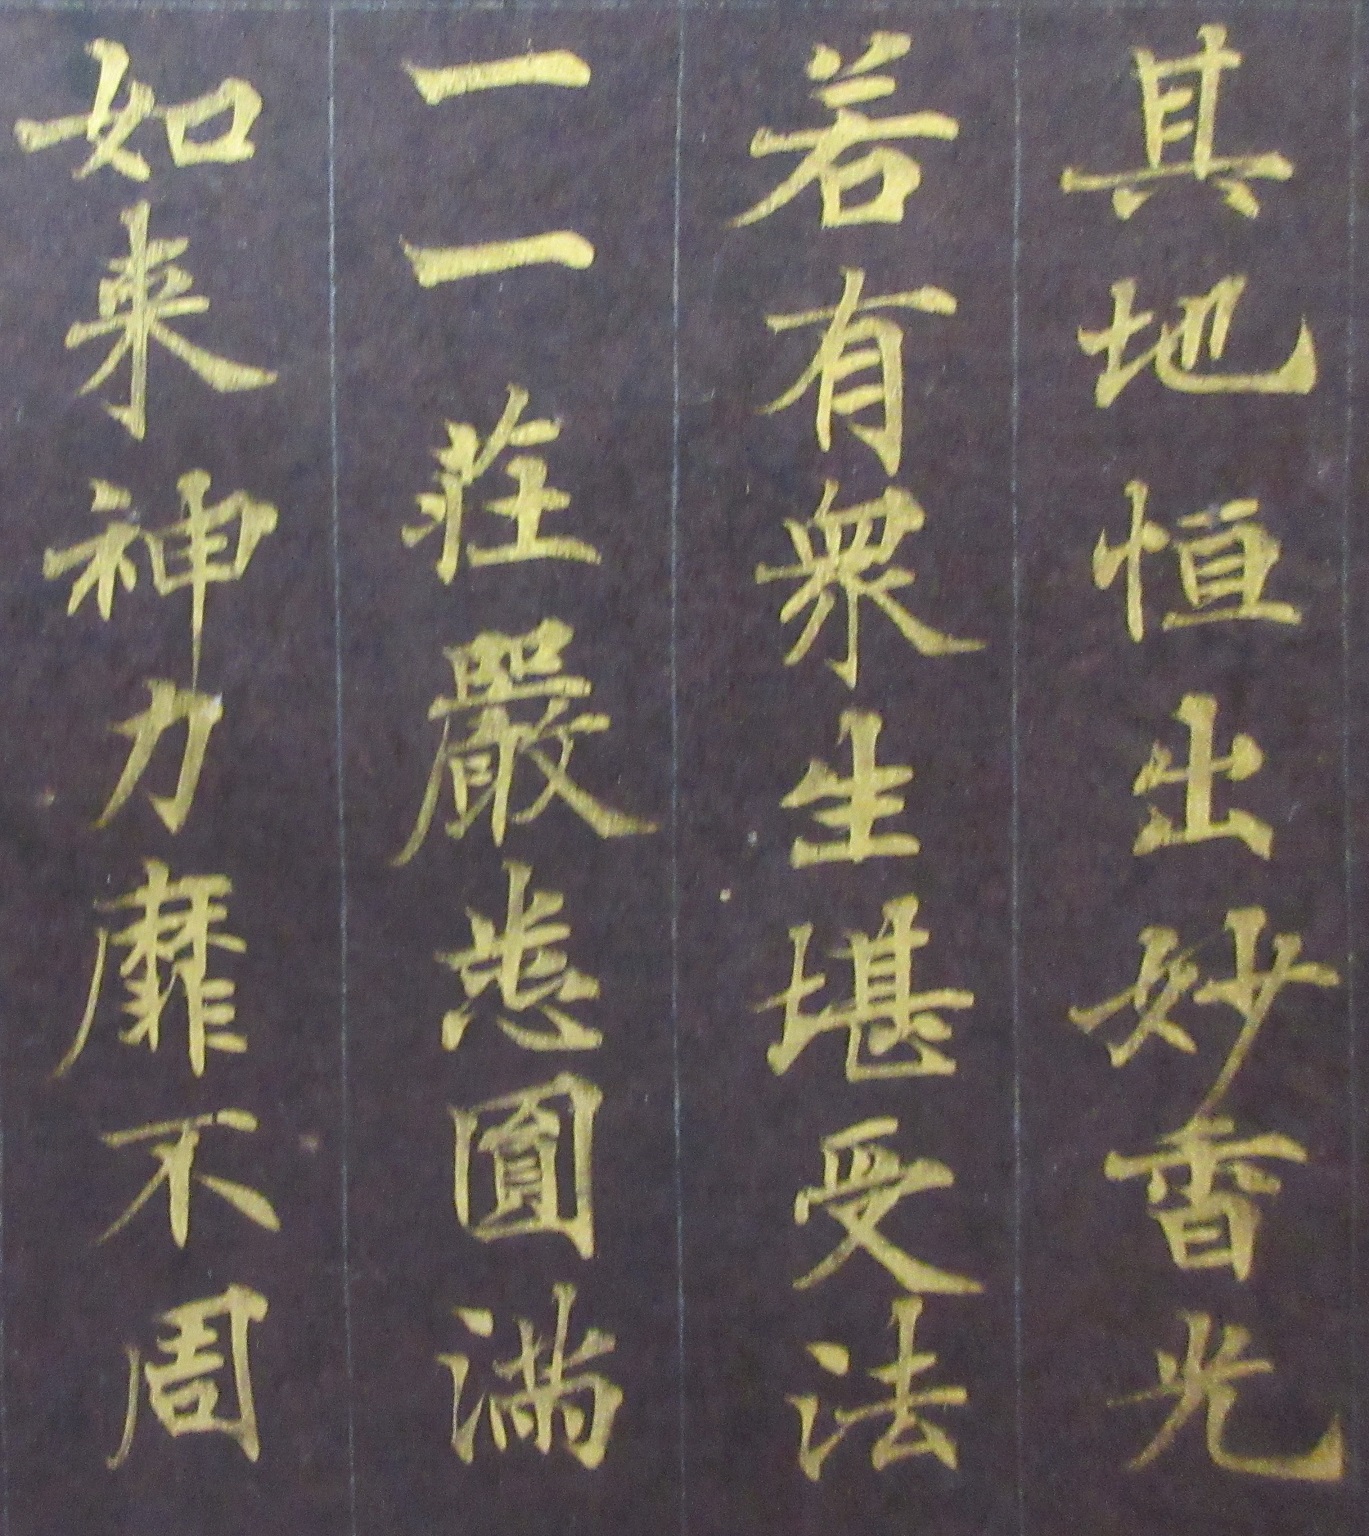 其地恒出妙香光
若有衆生堪受法
一一莊嚴悉圓滿
如来神力靡不周